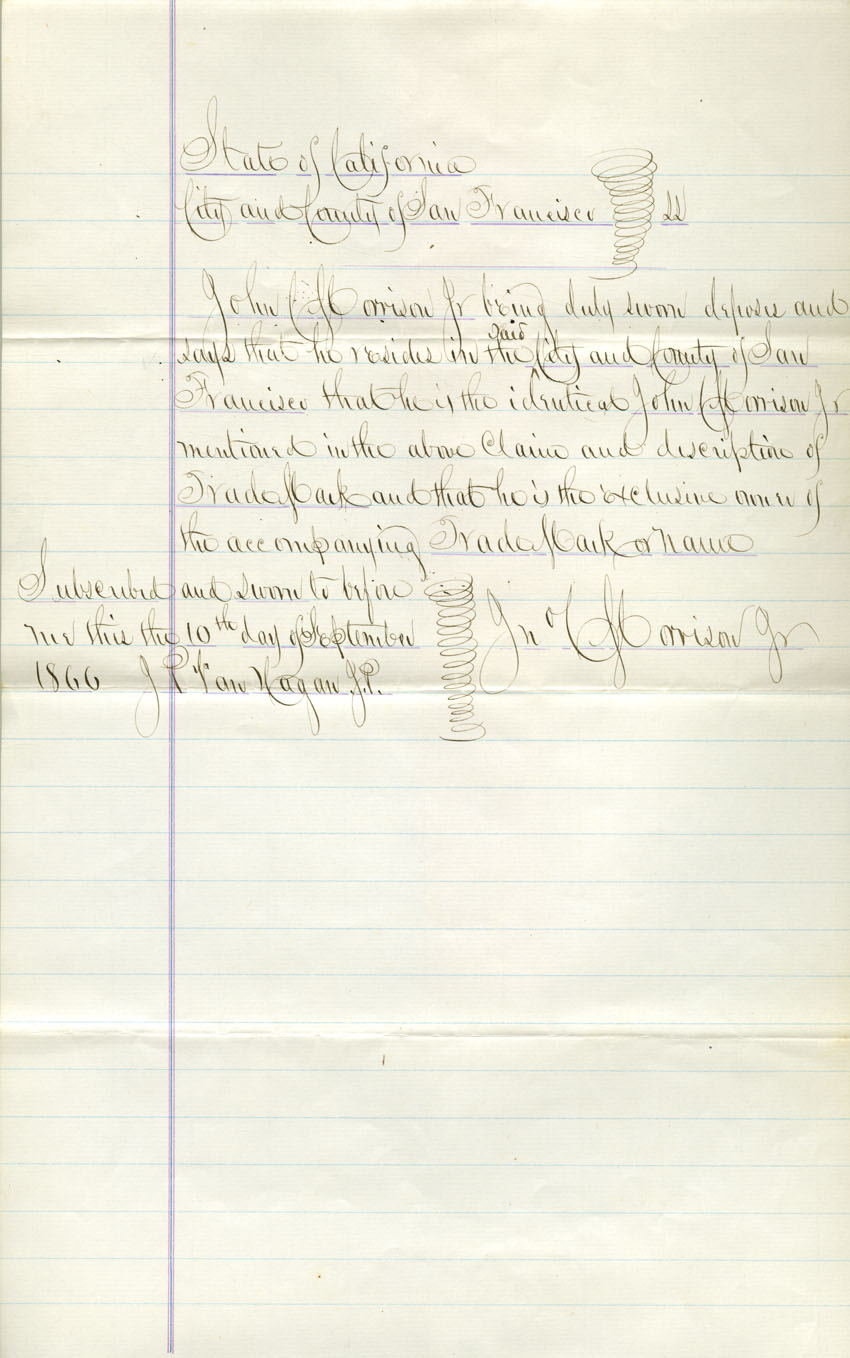 State of California
City and County of San Francisco ss
John C Morrison Jr being duly sworn deposes and
said
says that he resides in the City and County of San
Francisco that he is the identical John C Morrison Jr
mentioned in the above Claim and description of
Trade Mark and that he is the exclusive owner of
the accompanying Trade Mark or Name
Subscribed and sworn to before
me this the 10th day of September
1866 J P Van Hagan J.P.
Jno C Morrison Jr